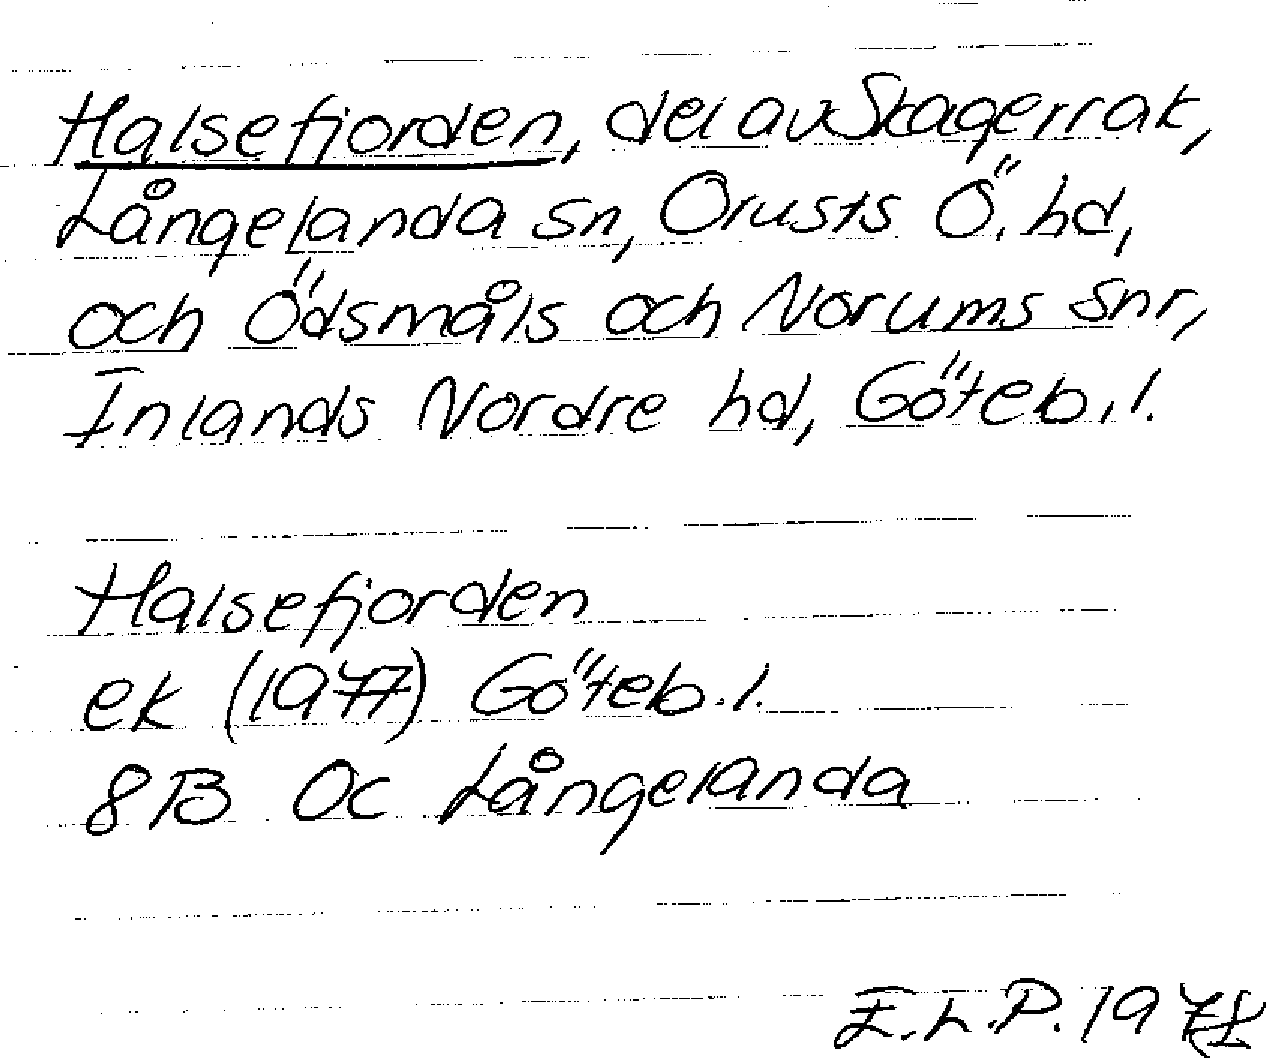 Halsefjorden, del av Skagerrak,
Långelanda sn, Orusts Ö. hd,
och Ödsmåls och Norums snr,
Inlands Nordre hd, Göteb. l.
Halsefjorden
ek (1977) Göteb. l.
8B Oc Långelanda
E.L.P. 1978